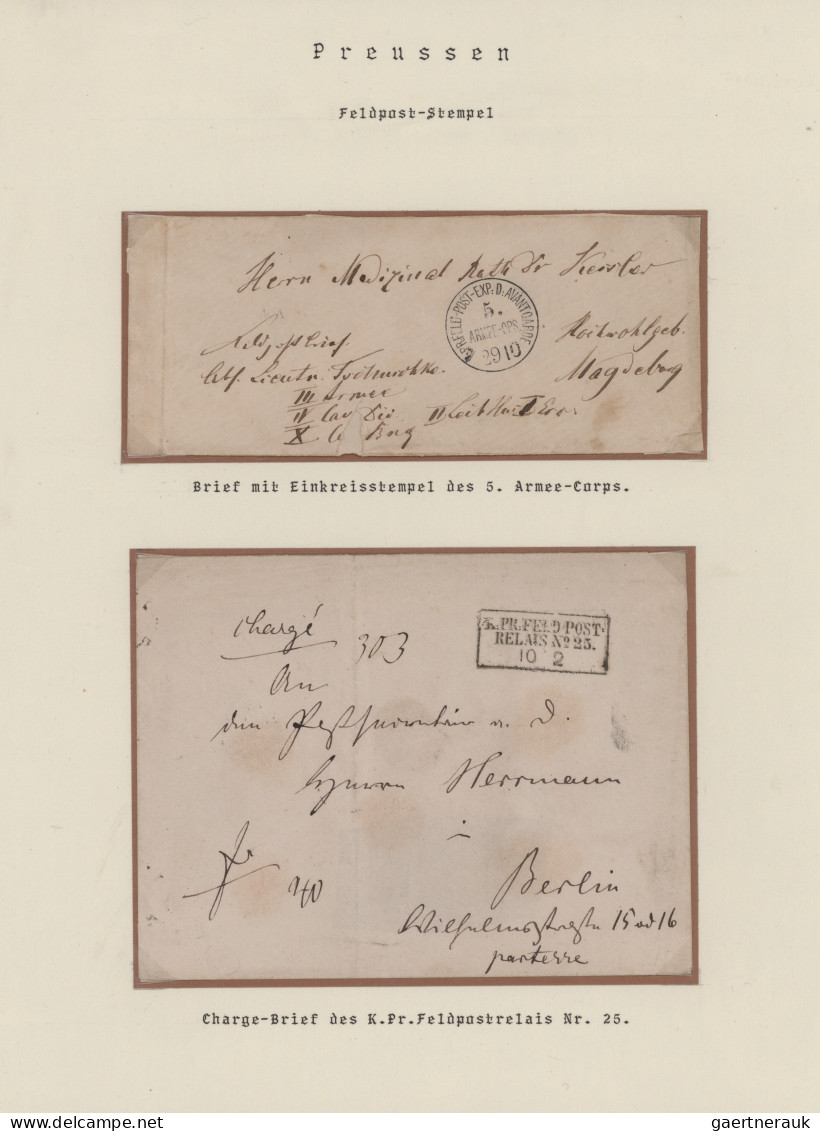 Preussen
Feldpost-Stempel
Herrn Medizinal Rath Dr Kersler
K.PR.FELD-POST-EXP.D.AVANTGARDE
5.
ARMEE-CPS.
29 10
Hochwohlgeb.
Feldpostbrief
Magdeburg
Abs. Lieutn.
III Armee
II Cav Div II Leib Hus
X C Brig
Brief mit Einkreisstempel des 5. Armee-Corps.
Chargé
303
K.PR.FELD-POST-
RELAIS No 25.
10 2
An
den Postsecretair a. D.
Herrn Herrmann
i
fr
40
Berlin
Wilhelmsstraße 15 od 16
parterre
Charge-Brief des K.Pr.Feldpostrelais Nr. 25.
gaertnerauk